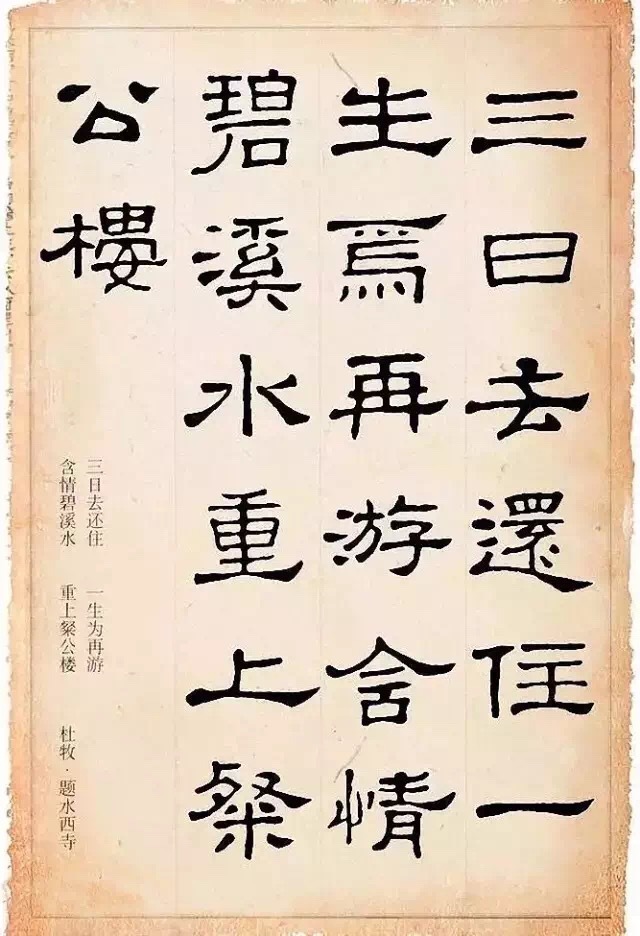 三日去還住一
生焉再游含情
碧溪水重上粲
公樓
三日去还住 一生为再游
含情碧溪水 重上粲公楼 杜牧·题水西寺